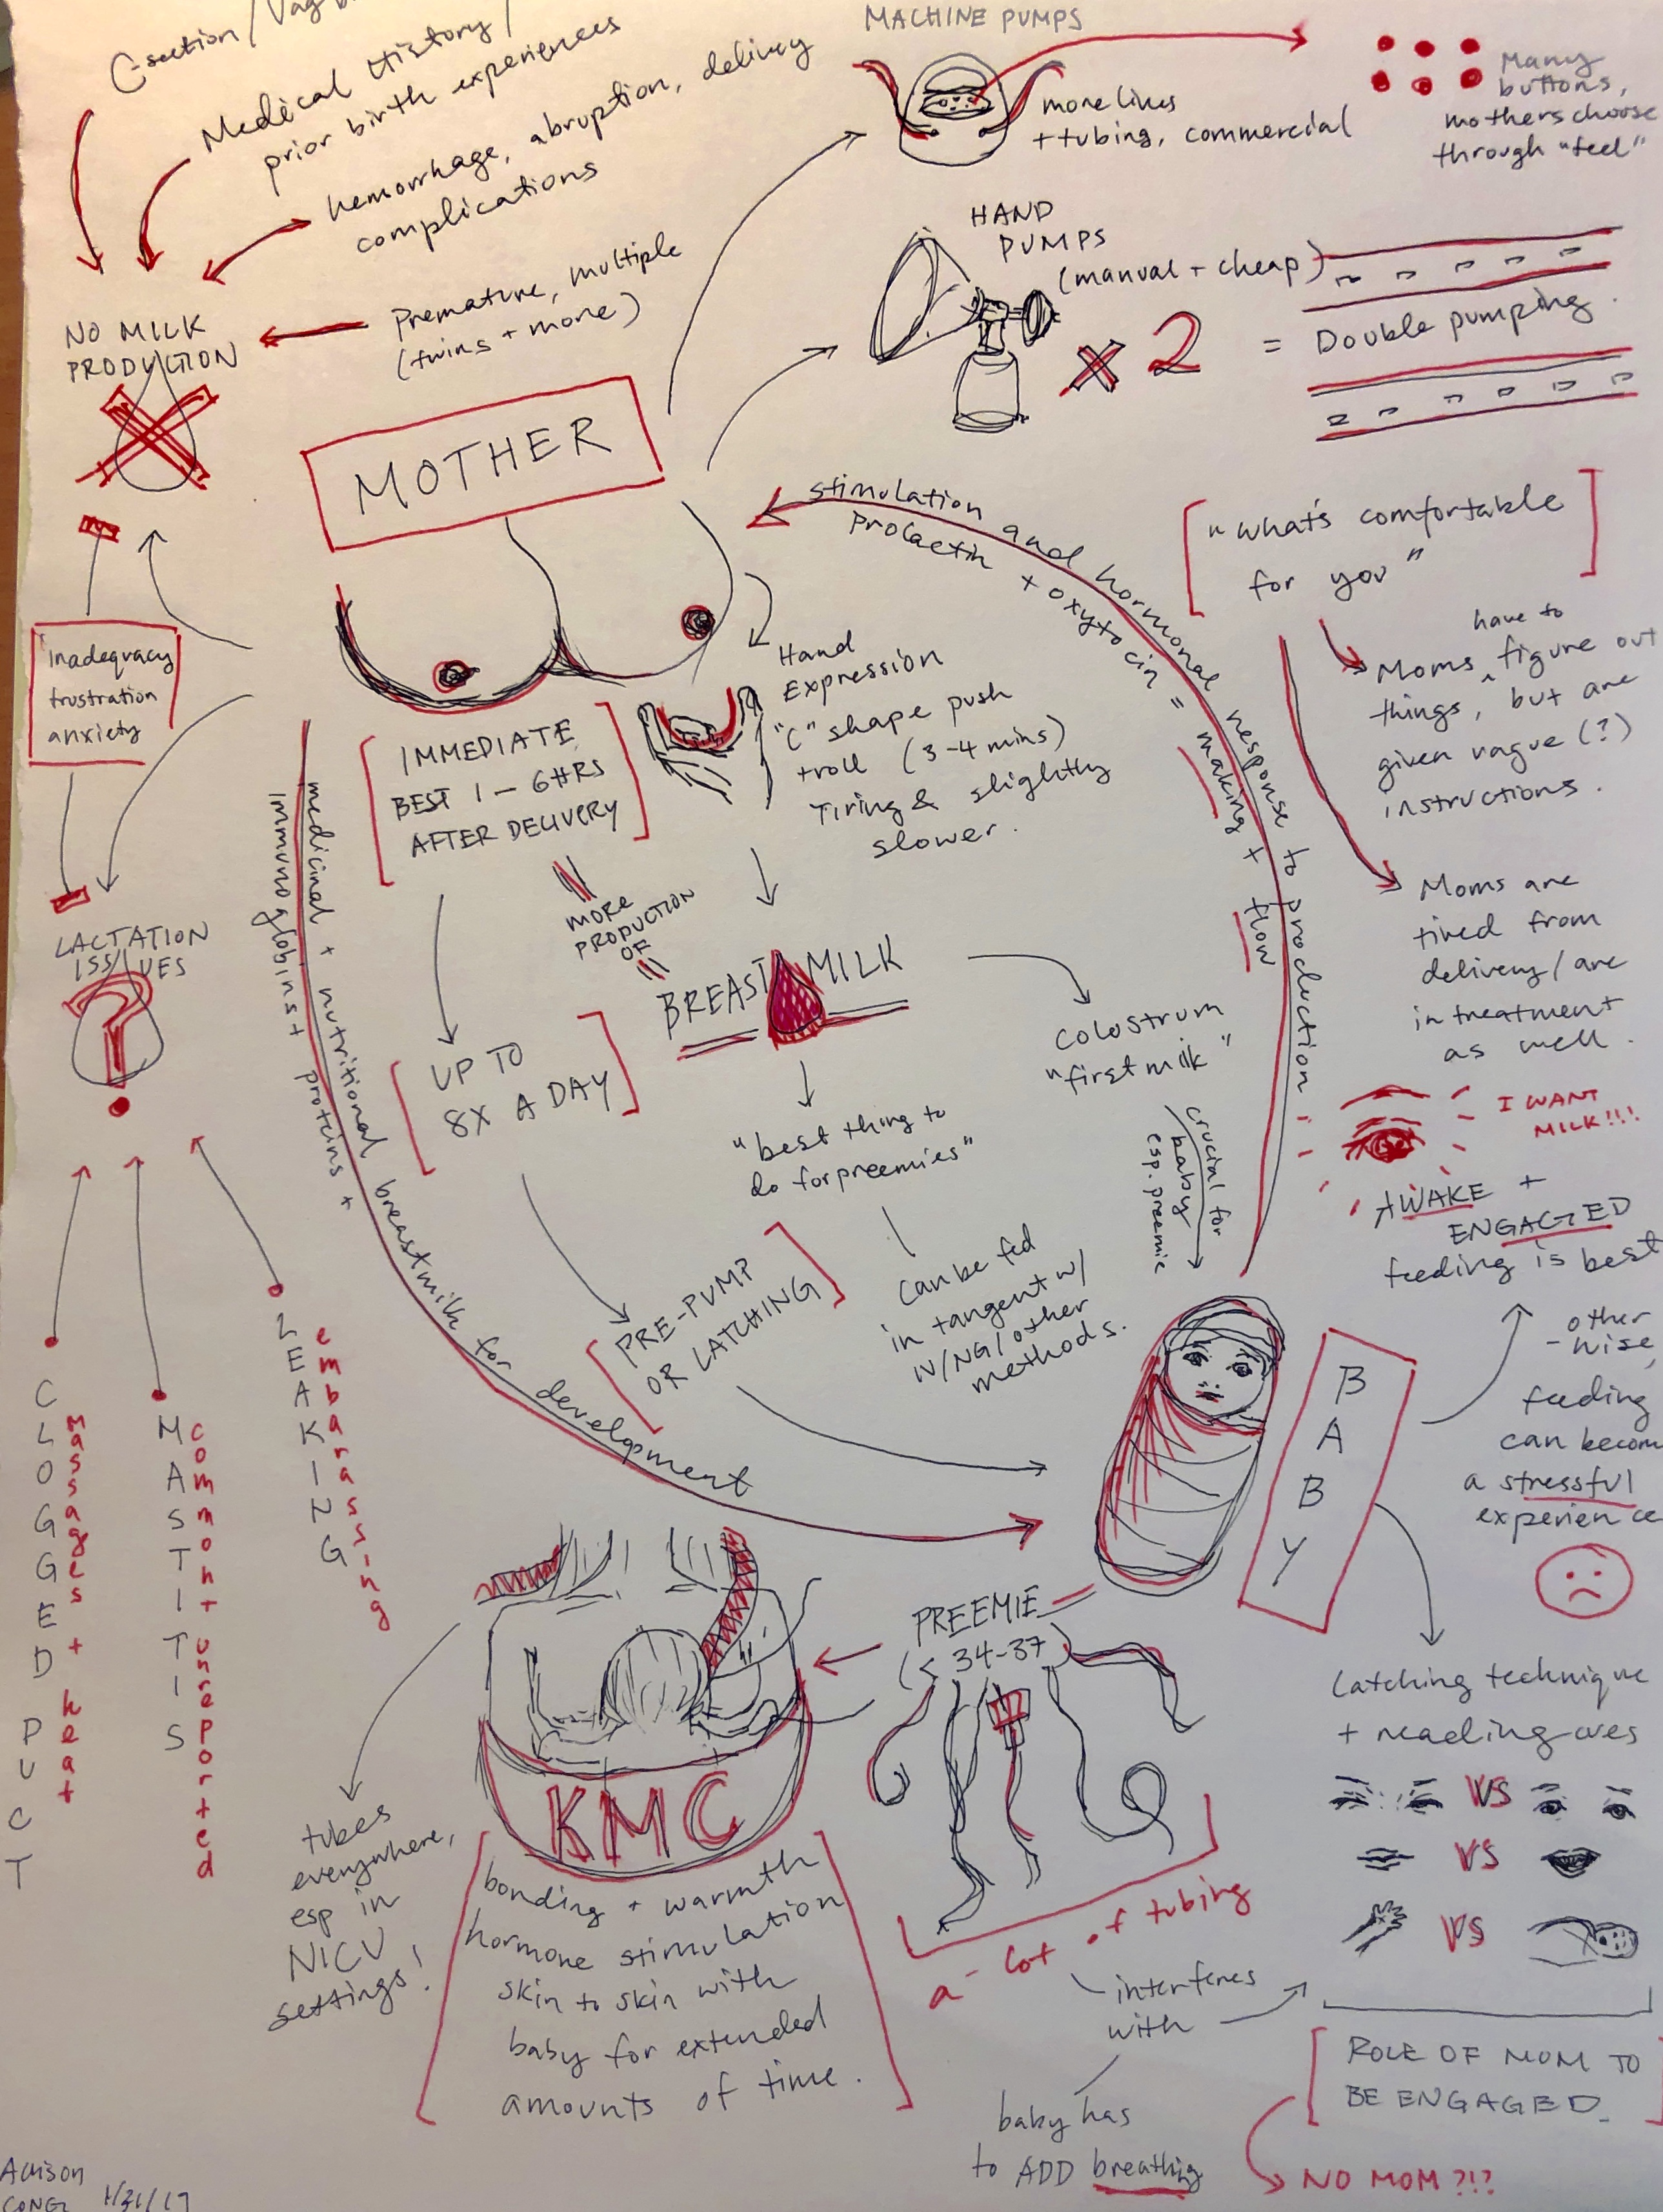 C-section/Vag
Medical History/
prior birth experiences
hemorrhage, abruption, delivery
complications
Premature, multiple
(twins + more)
NO MILK
PRODUCTION
MACHINE PUMPS
more lines
+ tubing, commercial
Many
buttons,
mothers choose
through "feel"
HAND
PUMPS
(manual + cheap)
x 2
= Double pumping
MOTHER
stimulation and hormonal response to production
Prolactin + oxytocin = making + flow
"what's comfortable
for you"
have to
Moms ^ figure out
things, but are
given vague (?)
instructions.
Moms are
tired from
delivery/are
in treatment
as well.
inadequacy
frustration
anxiety
Hand
Expression
"C" shape push
+ roll (3-4 mins)
Tiring & slightly
slower.
IMMEDIATE
BEST 1-6HRS
AFTER DELIVERY
MORE
PRODUCTION
OF
BREAST MILK
Colostrum
"first milk"
crucial for
baby
esp. preemie
UP TO
8X A DAY
"best thing to
do for preemies"
can be fed
in tangent w/
IV/NG/other
methods.
PRE-PUMP
OR LATCHING
medicinal + nutritional breastmilk for development
immunoglobins + proteins +
LACTATION
ISSUES
?
CLOGGED PUCT
massages + heat
MASTITIS
common + unreported
LEAKING
embarassing
I WANT
MILK!!!
AWAKE +
ENGAGED
feeding is best
other
-wise,
feeding
can becom
a stressful
experience
BABY
PREEMIE
(< 34-37)
a lot of tubing
interferes
with
baby has
to ADD breathing
Latching technique
+ reading cues
VS
VS
VS
ROLE OF MOM TO
BE ENGAGED.
NO MOM?!?
KMC
bonding + warmth
hormone stimulation
skin to skin with
baby for extended
amounts of time.
tubes
everywhere,
esp in
NICU
settings!
1/31/17